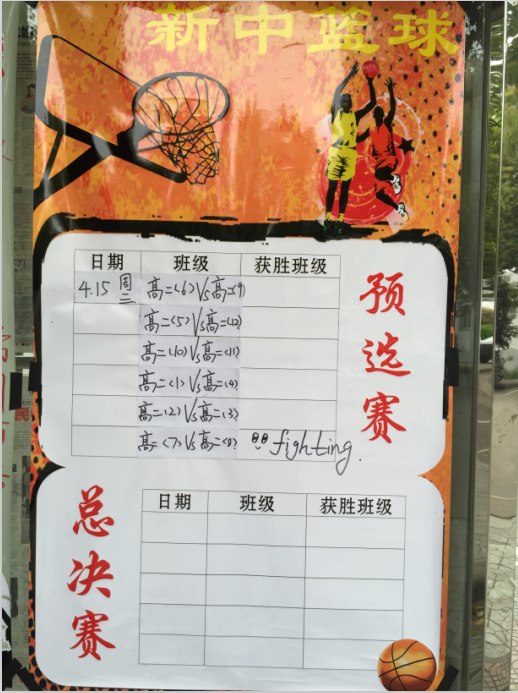 新中篮球
预选赛
日期 班级 获胜班级
4.15 周二 高二<6>VS高二<9>
高二<5>VS高二<12>
高二<10>VS高二<11>
高二<1>VS高二<4>
高二<2>VS高二<3>
高二<7>VS高二<8> fighting.
总决赛
日期 班级 获胜班级